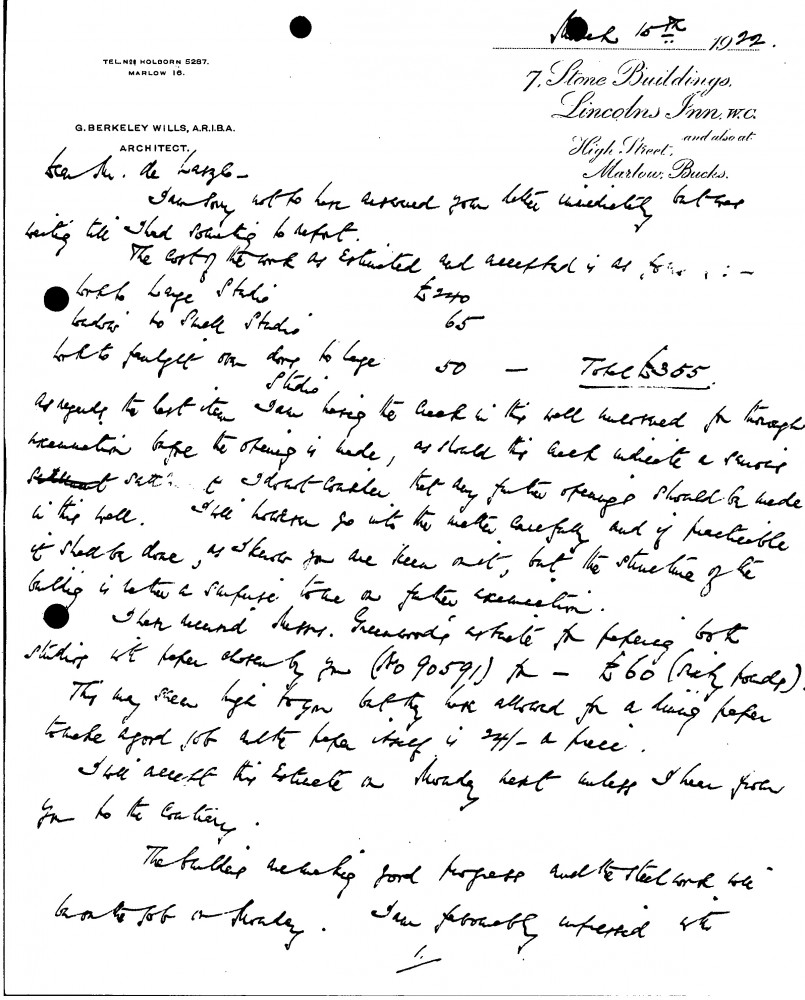 March 15th 1922.
TEL. Nos HOLBORN 5287.
MARLOW 16.
7, Stone Buildings,
Lincolns Inn, W.C.
and also at
High Street,
Marlow, Bucks.
G. BERKELEY WILLS, A.R.I.B.A.
ARCHITECT.
Dear Mr. de Laszlo -
I am sorry not to have answered your letter immediately but was
waiting till I had something to report.
The cost of the work as estimated and accepted is as :-
Work to Large Studio £240
Window to Small Studio 65
Work to over to large 50 — Total £355.
Studio
As regards the last item I am having the crack in this wall uncovered for thorough
examination before the opening is made, as should this crack indicate a serious
I do not consider that any further openings should be made
in this wall. I will however go into the matter carefully and if practicable
it shall be done, as I know you are keen on it, but the structure of the
building is rather a surprise to me on further examination.
I have received Messrs. Greenwood's estimate for papering both
studios with paper chosen by you (No 90591) for — £60 (Sixty pounds).
This may seem high to you but they have allowed for a lining paper
to make a good job and the paper itself is 24/- a piece.
I will accept this estimate on Monday next unless I hear from
you to the contrary.
The builders are making good progress and the steel work will
be on the job on Monday. I am favourably impressed with
1.